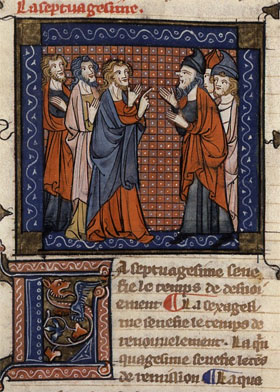 La septuagesime.
LA septuagesime sene
fie le temps de desuoi
ement. ¶ La sexagesi
me senefie le temps de
renouuelement. La qui
quagesime senefie le tēs
de remission ¶ La qua